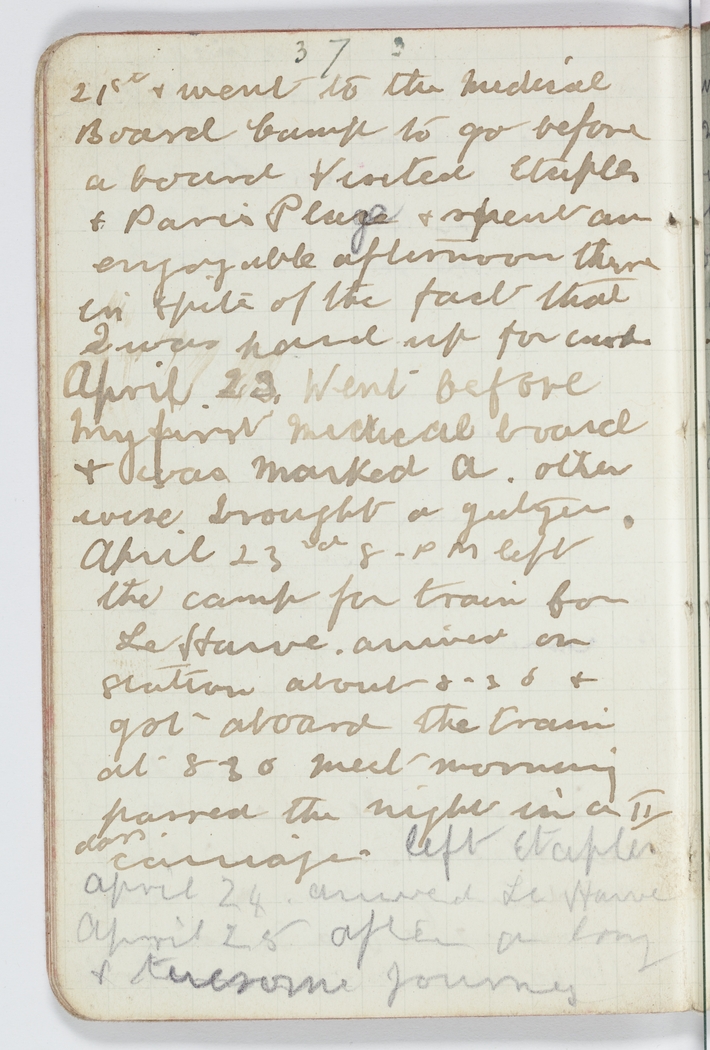 37 3
21st & went to the Medical
Board Camp to go before
a board Visited Etaples
& Paris Plage & spent an
enjoyable afternoon there
in spite of the fact that
I was hard up for
April 23. Went before
my first Medical board
& was marked A. other
wise brought a
April 23rd 8-PM left
the camp for train for
Le Harve. arrived on
station about 8-30 &
got aboard the train
at 8 30 next morning
passed the night in a II
class carriage. left Etaples
April 24. arrived Le Harve
April 25 after a long
& tuesome journey